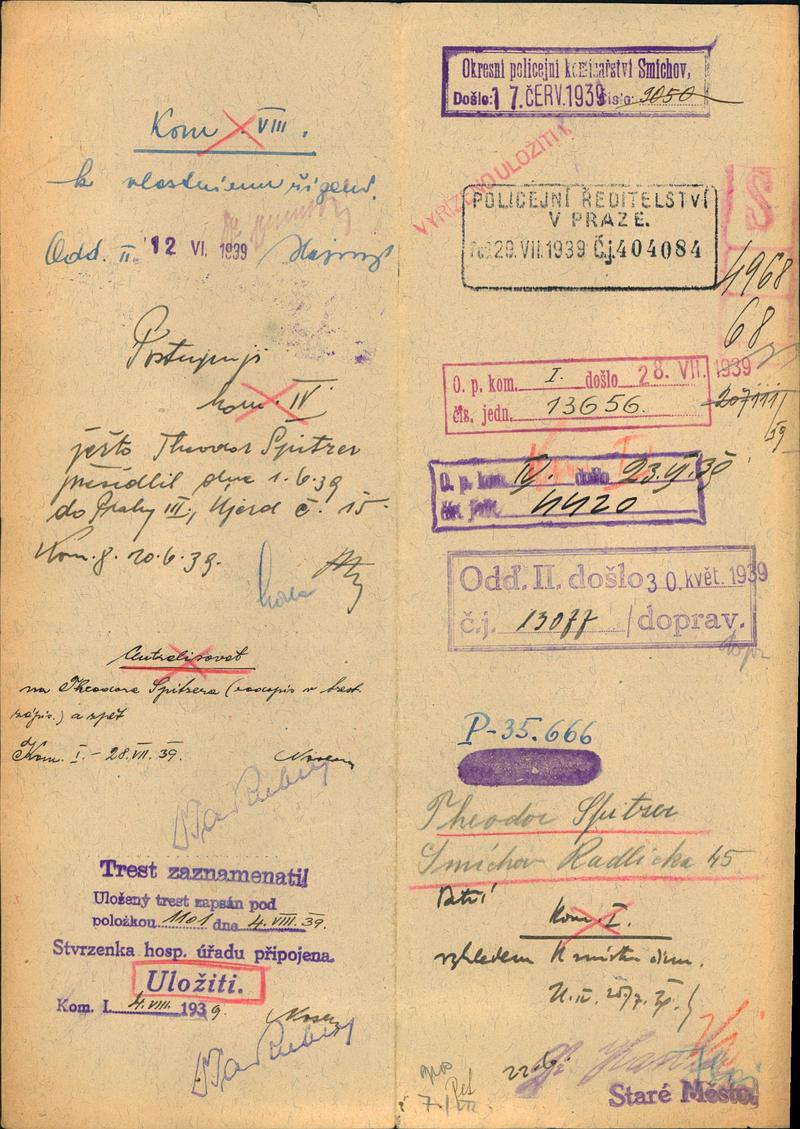 Kom. VIII.
k vlastnímu řízení.
Odd. II. 12 VI. 1939
Postupuji
kom. IV
ježto Theodor Spitzer
přesídlil dne 1.6.39
do Prahy III., Újezd č. 15.
Kom. 8. 20.6.39.
Centralisovat
na Theodora Spitzera (
zápis.) a zpět
Kom. I. - 28.VII.39.
Trest zaznamenatil
Uložený trest zapsán pod
položkou 1101 dne 4.VIII.39.
Stvrzenka hosp. úřadu připojena.
Uložiti.
Kom. I. 4.VIII. 1939.
Okresní policejní komisařství Smíchov,
Došlo: 17. ČERV. 1939 Číslo: 9050
VYŘÍZENO ULOŽITI
POLICEJNÍ ŘEDITELSTVÍ
V PRAZE.
29.VII.1939 Č.j. 404084
S
4968
68
O. p. kom. I. došlo 28. VII. 1939
čís. jedn. 13656.
O. p. kom. IV. došlo 23.VI.39
čís. jedn. 4420
Odd. II. došlo 30. květ. 1939
č.j. 13077 /doprav.
P-35.666
Theodor Spitzer
Smíchov Radlická 45
Patří
Kom. I.
vzhledem k místu čin.
Staré Město.